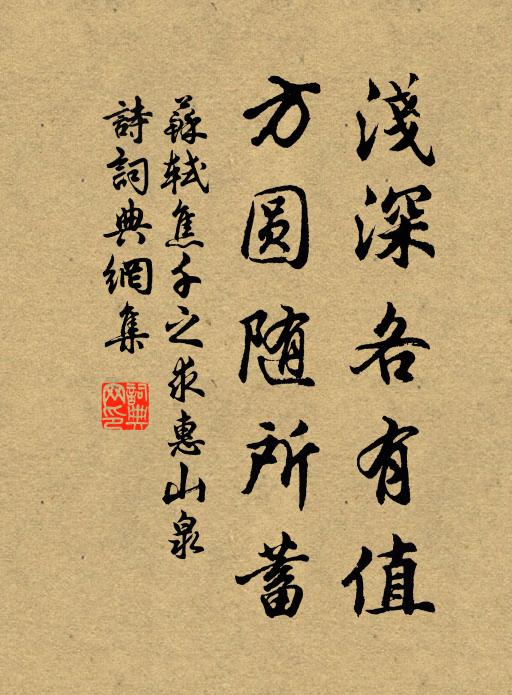 淺深各有值
方圆随所蓄
蘇軾焦千之求惠山泉
詩詞典網集
詞典網印